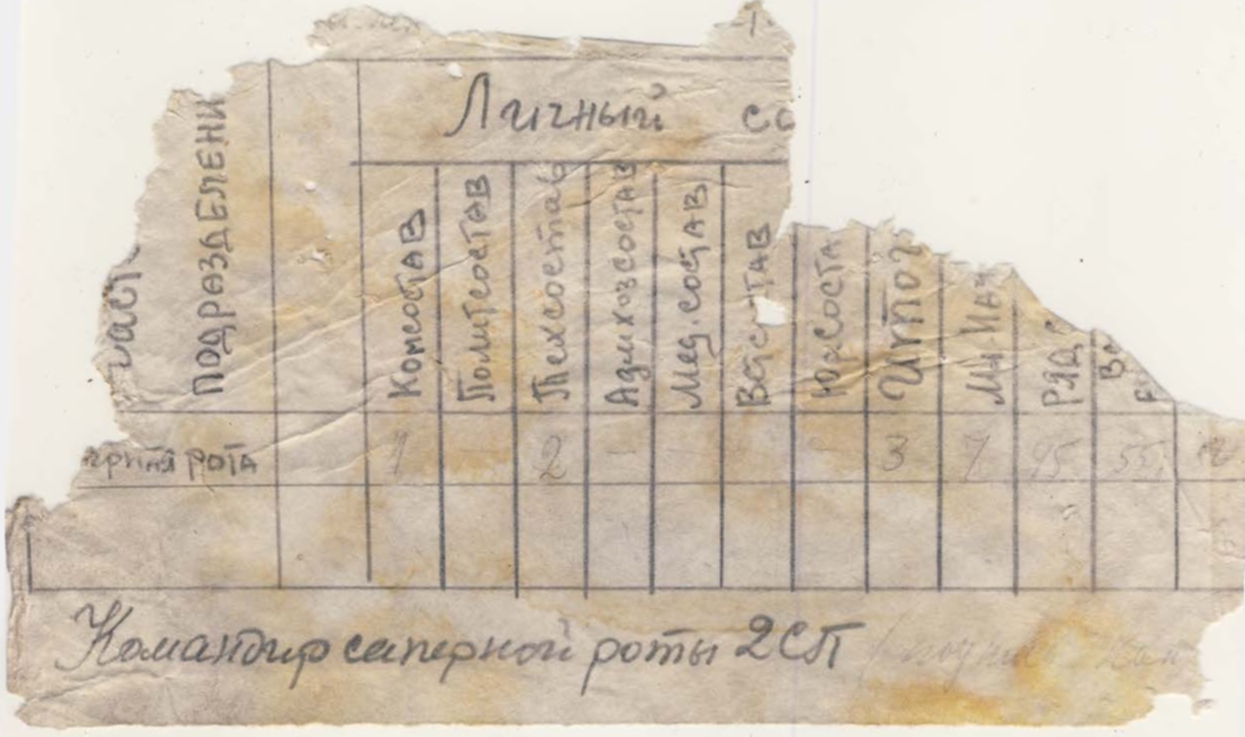 Личный
ПОДРАЗДЕЛЕНИ
Комсостав
Политсостав
Техсостав
Админхозсостав
Мед. состав
Юрсоста
Итог
Мл. Нач
Ряд
рота 1 2 3 7 45 55
Командир саперной роты 2СП